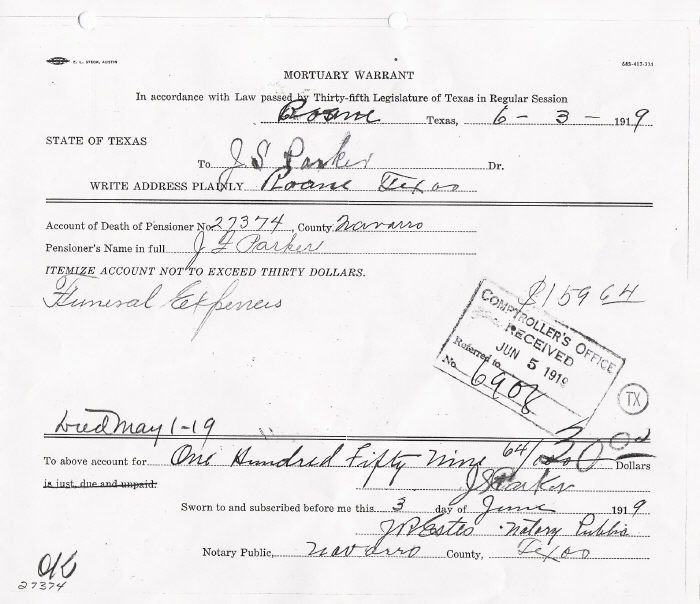 E. L. STECK, AUSTIN
MORTUARY WARRANT
In accordance with Law passed by Thirty-fifth Legislature of Texas in Regular Session
Roane Texas, 6 - 3 - 1919
STATE OF TEXAS
To J S Parker Dr.
WRITE ADDRESS PLAINLY Roane Texas
Account of Death of Pensioner No. 27374, County Navarro
Pensioner's Name in full J F Parker
ITEMIZE ACCOUNT NOT TO EXCEED THIRTY DOLLARS.
Funeral Expences $159 64
COMPTROLLER'S OFFICE
RECEIVED
JUN 5 1919
Referred to
No 6908
TX
Died May 1-19
To above account for One Hundred Fifty Nine 64/100 30 00 Dollars
is just, due and unpaid. J S Parker
Sworn to and subscribed before me this 3 day of June 1919
J R Estes Notary Public
Notary Public, Navarro County, Texas
OK
27374